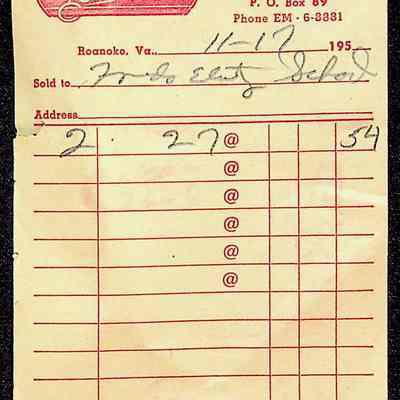 P. O. Box 89
Phone EM - 6-8881
Roanoke, Va. 11-17 195
Sold to School
Address
2 . 27 @ 54
@
@
@
@
@